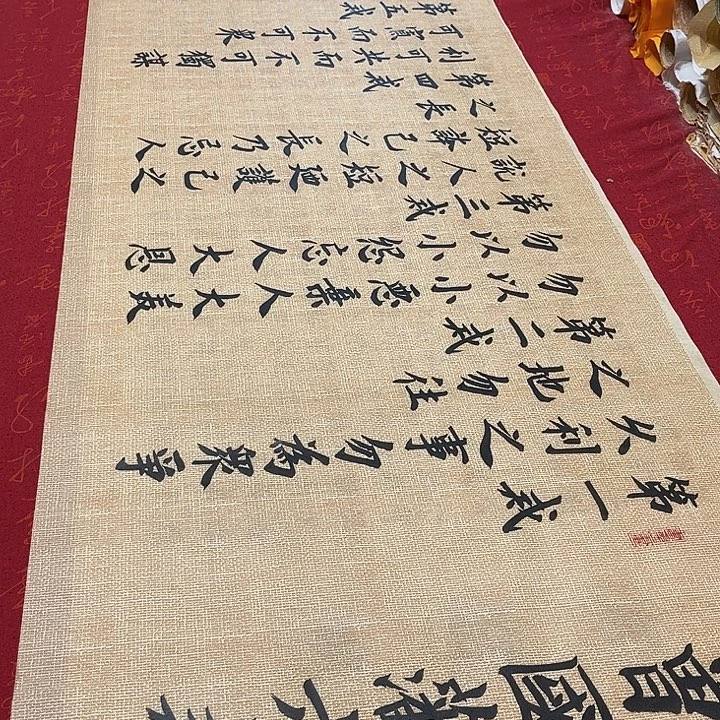 曾國藩六戒
第一戒
久利之事勿為眾爭
之地勿往
第二戒
勿以小惡棄人大美
勿以小怨忘人大恩
第三戒
說人之短廼護己之
短誇己之長乃忌人
之長
第四戒
利可共而不可獨謀
可寡而不可眾
第五戒